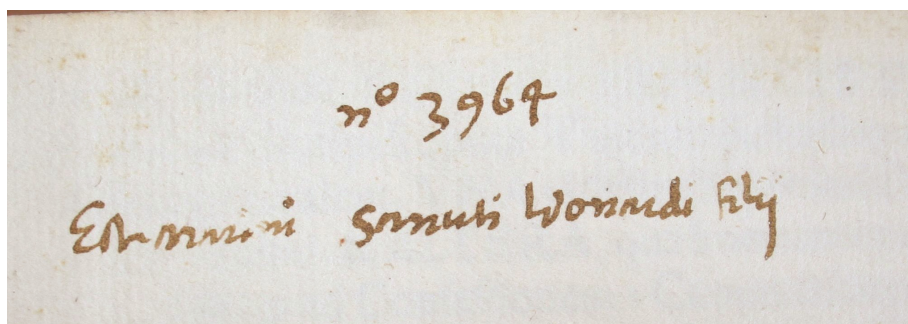 nº 3964
Est Marini Sanuti Leonardi filij